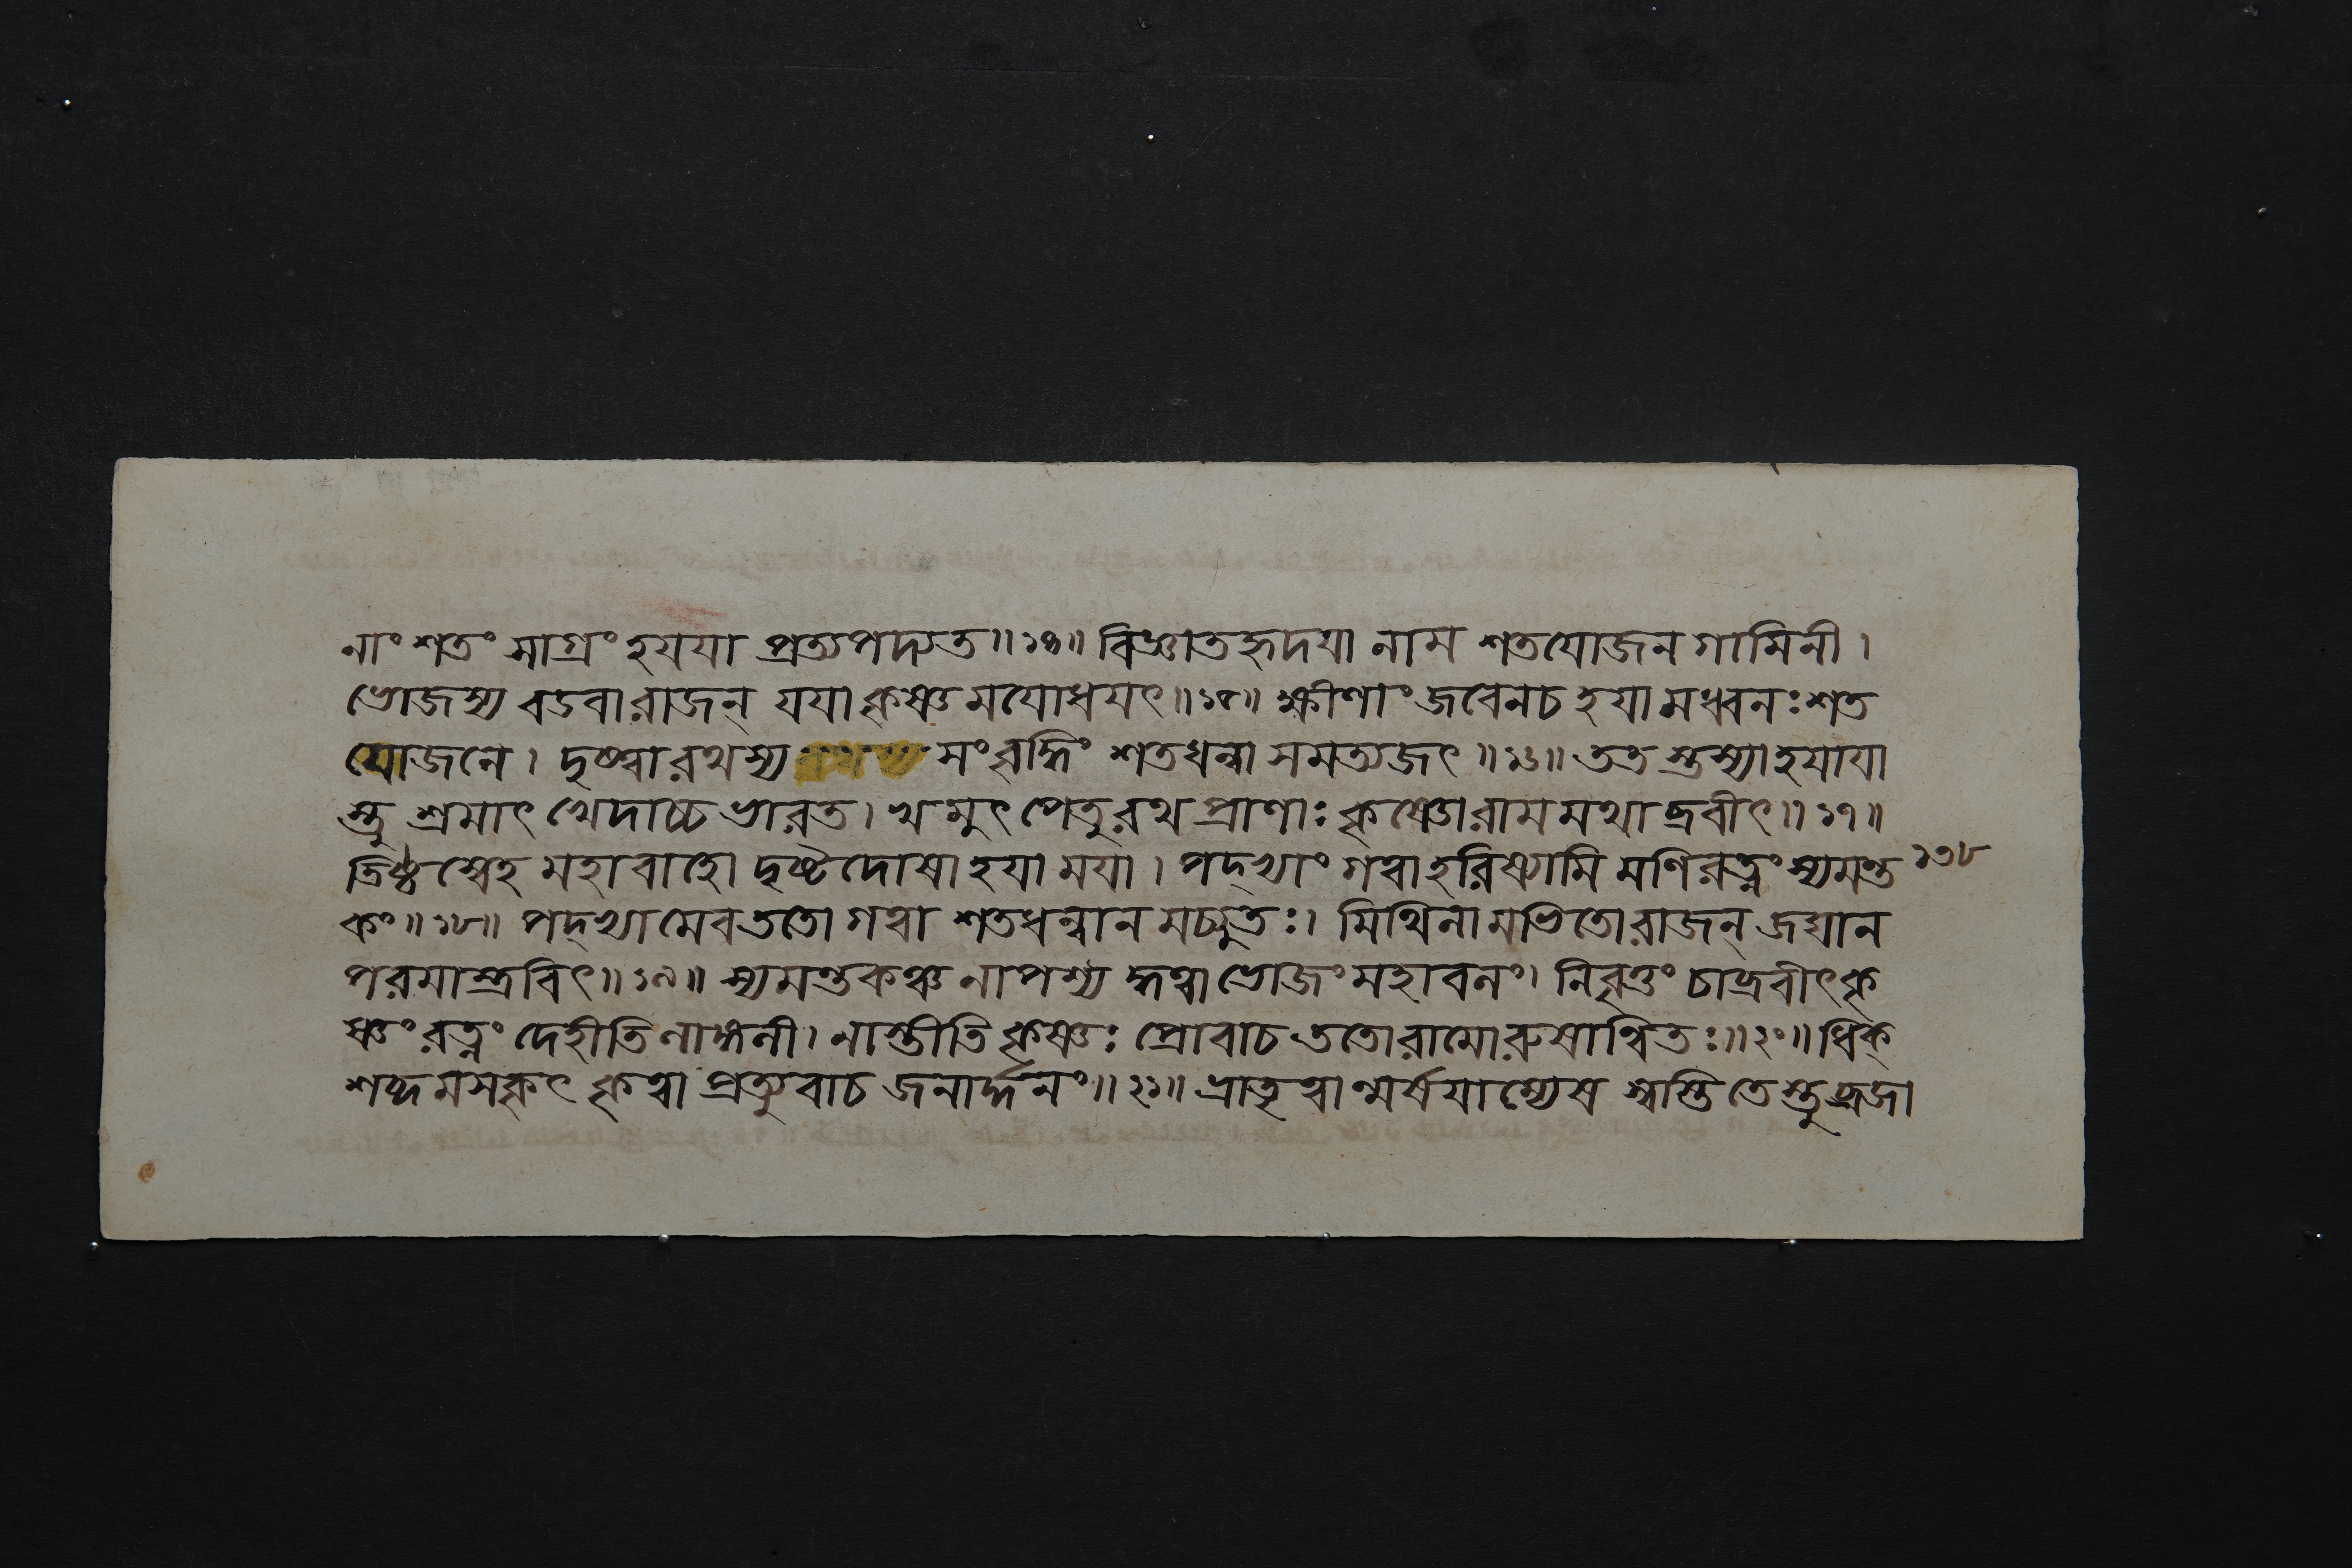 নাং শতং সাগ্রং হযযা প্রত্যপদ্যত॥১৪॥ বিজ্ঞাতহৃদযা নাম শতযোজনগামিনী।
ভোজস্য বডবা রাজন্ যযা কৃষ্ণমযোধযৎ॥১৫॥ ক্ষীণাং জবেন চ হযামধ্বনঃ শত
যোজনে। দৃষ্ট্বা রথস্য সংবৃদ্ধিং শতধন্বা সমত্যজৎ॥১৬॥ ততস্তস্যা হযাযা
স্তু শ্রমাৎ খেদাচ্চ ভারত। খমুৎপেতুরথ প্রাণাঃ কৃষ্ণো রামমথাব্রবীৎ॥১৭॥
তিষ্ঠস্বেহ মহাবাহো দৃষ্টদোষা হযা মযা। পদ্ভ্যাং গত্বা হরিষ্যামি মণিরত্নং স্যমন্ত ১৩৮
কং॥১৮॥ পদ্ভ্যামেব ততো গত্বা শতধন্বানমচ্যুতঃ। মিথিলামভিতো রাজন্ জঘান
পরমাস্ত্রবিৎ॥১৯॥ স্যমন্তকঞ্চ নাপশ্যদ্ধত্বা ভোজং মহাবলং। নিবৃত্তং চাব্রবীৎ কৃ
ষ্ণং রত্নং দেহীতি লাঙ্গলী। নাস্তীতি কৃষ্ণঃ প্রোবাচ ততো রামো রুষান্বিতঃ॥২০॥ ধিক্
শব্দমসকৃৎ কৃত্বা প্রত্যুবাচ জনার্দ্দনং॥২১॥ ভ্রাতৃত্বান্মর্ষযাম্যেষ স্বস্তি তেস্তু ব্রজা